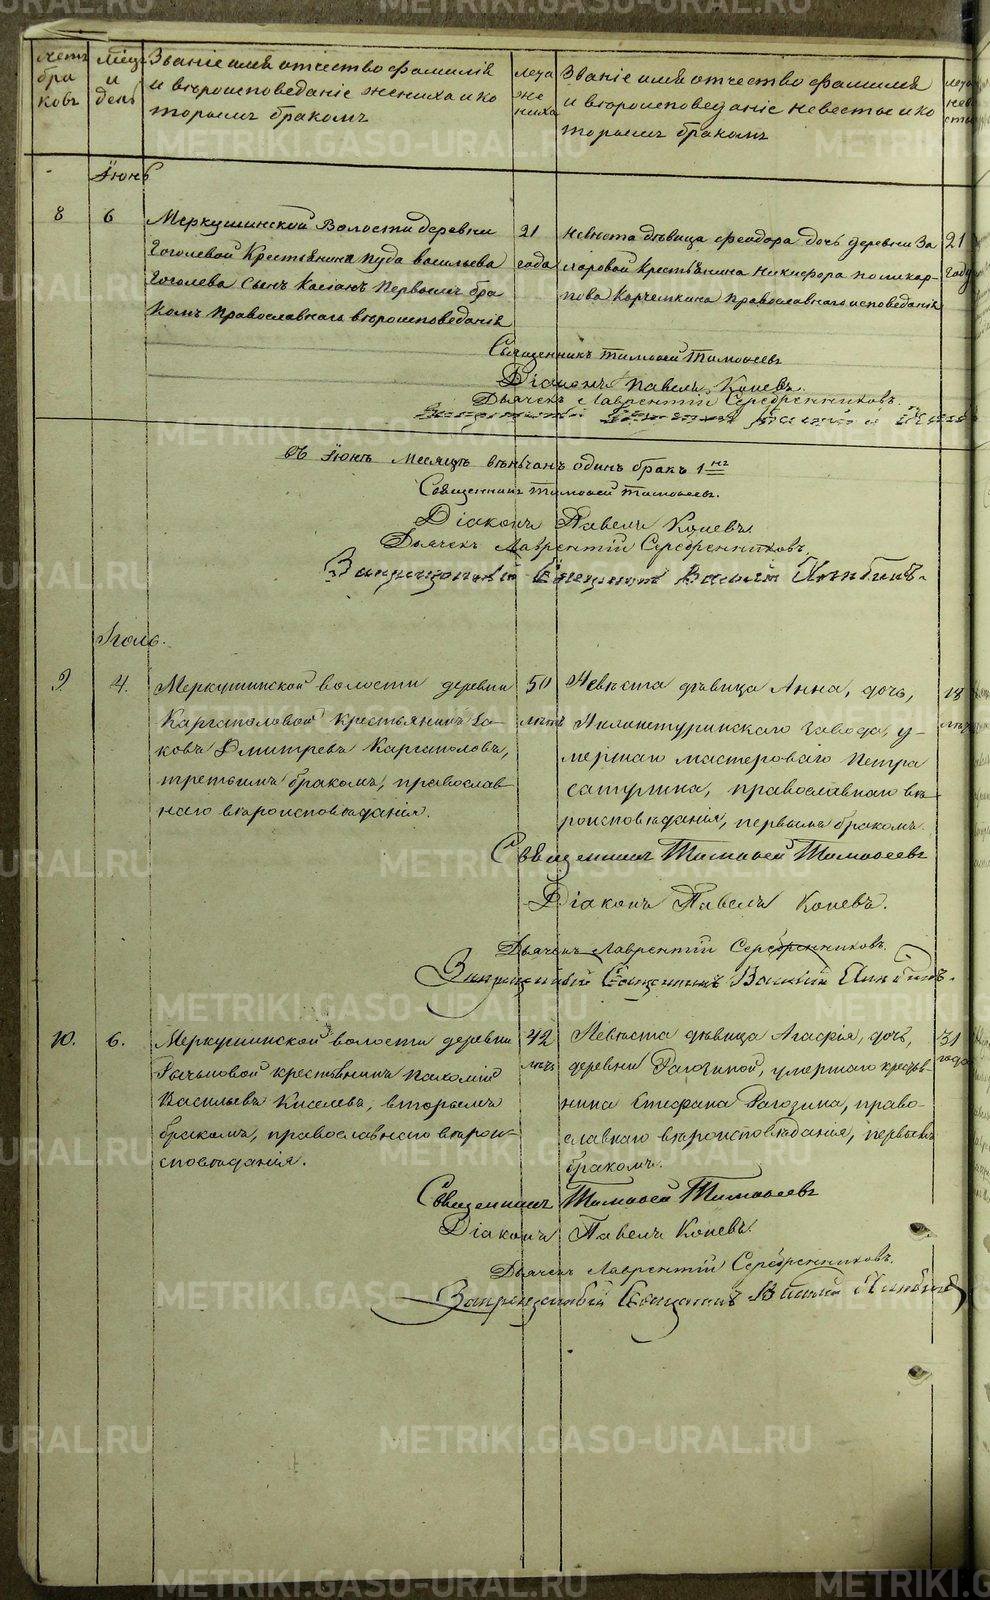 METRIKI.GASO-URAL.RU
Счетъ браковъ
Мѣцъ и день
Званіе имя отчество фамилія
и вѣроисповеданіе жениха и ко
торымъ бракомъ
Лета жениха
Званіе имя отчество фамилия
и вѣроисповеданіе невесты и ко
торымъ бракомъ
Лета невесты
Іюнь
8
6
Меркушинской Волости деревни
Гоголевой Крестьянина Пуда Васильева
Гоголева Сынъ Касіанъ Первымъ бра
комъ Православнаго вѣроисповеданія
21
года
Невѣста дѣвица Феодора дочь деревни За
моровой Крестьянина Никифора поликар
пова Корчемкина Православнаго исповеданія
21
году
Священникъ Тимофей Тимофеевъ
Діаконъ Павелъ Коневъ.
Дьячекъ Лаврентій Серебренниковъ.
Въ Іюнѣ месяцѣ вѣнчанъ одинъ бракъ 1нъ
Священникъ Тимофей Тимофеевъ.
Діаконъ Павелъ Коневъ
Дьячекъ Лаврентій Серебренниковъ.
Запрещенный Священникъ Василій
Іюль.
9
4.
Меркушинской волости деревни
Каргаполовой крестьянинъ Іа-
ковъ Дмитревъ Каргаполовъ,
третьимъ бракомъ, православ-
наго вѣроисповѣданія.
50
лѣтъ
Невѣста дѣвица Анна, дочь,
Нижнетуринскаго завода, у-
мершаго мастероваго Петра
Сатурина, православнаго вѣ-
роисповѣданія, первымъ бракомъ.
18
лѣтъ
Священникъ Тимофей Тимофеевъ
Діаконъ Павелъ Коневъ.
Дьячекъ Лаврентій Серебренниковъ.
Запрещенный Священникъ Василій
10.
6.
Меркушинской волости деревни
крестьянинъ Пахомій
Васильевъ Киселевъ, вторымъ
бракомъ, православнаго вѣрои-
сповѣданія.
42
лѣтъ
Невѣста дѣвица Агафія, дочь,
деревни Рагозиной, умершаго крестья-
нина Стефана Рагозина, право-
славнаго вѣроисповѣданія, первымъ
бракомъ.
31
года
Священникъ Тимофей Тимофеевъ
Діаконъ Павелъ Коневъ.
Дьячекъ Лаврентій Серебренниковъ.
Запрещенный Священникъ Василій